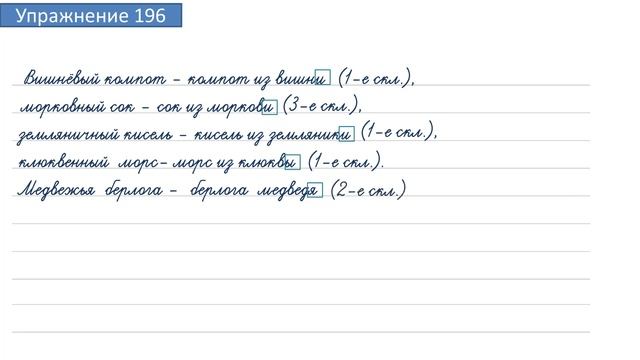 Упражнение 196
Вишнёвый компот - компот из вишни (1-е скл.),
морковный сок - сок из моркови (3-е скл.),
земляничный кисель - кисель из земляники (1-е скл.),
клюквенный морс - морс из клюквы (1-е скл.).
Медвежья берлога - берлога медведя (2-е скл.)